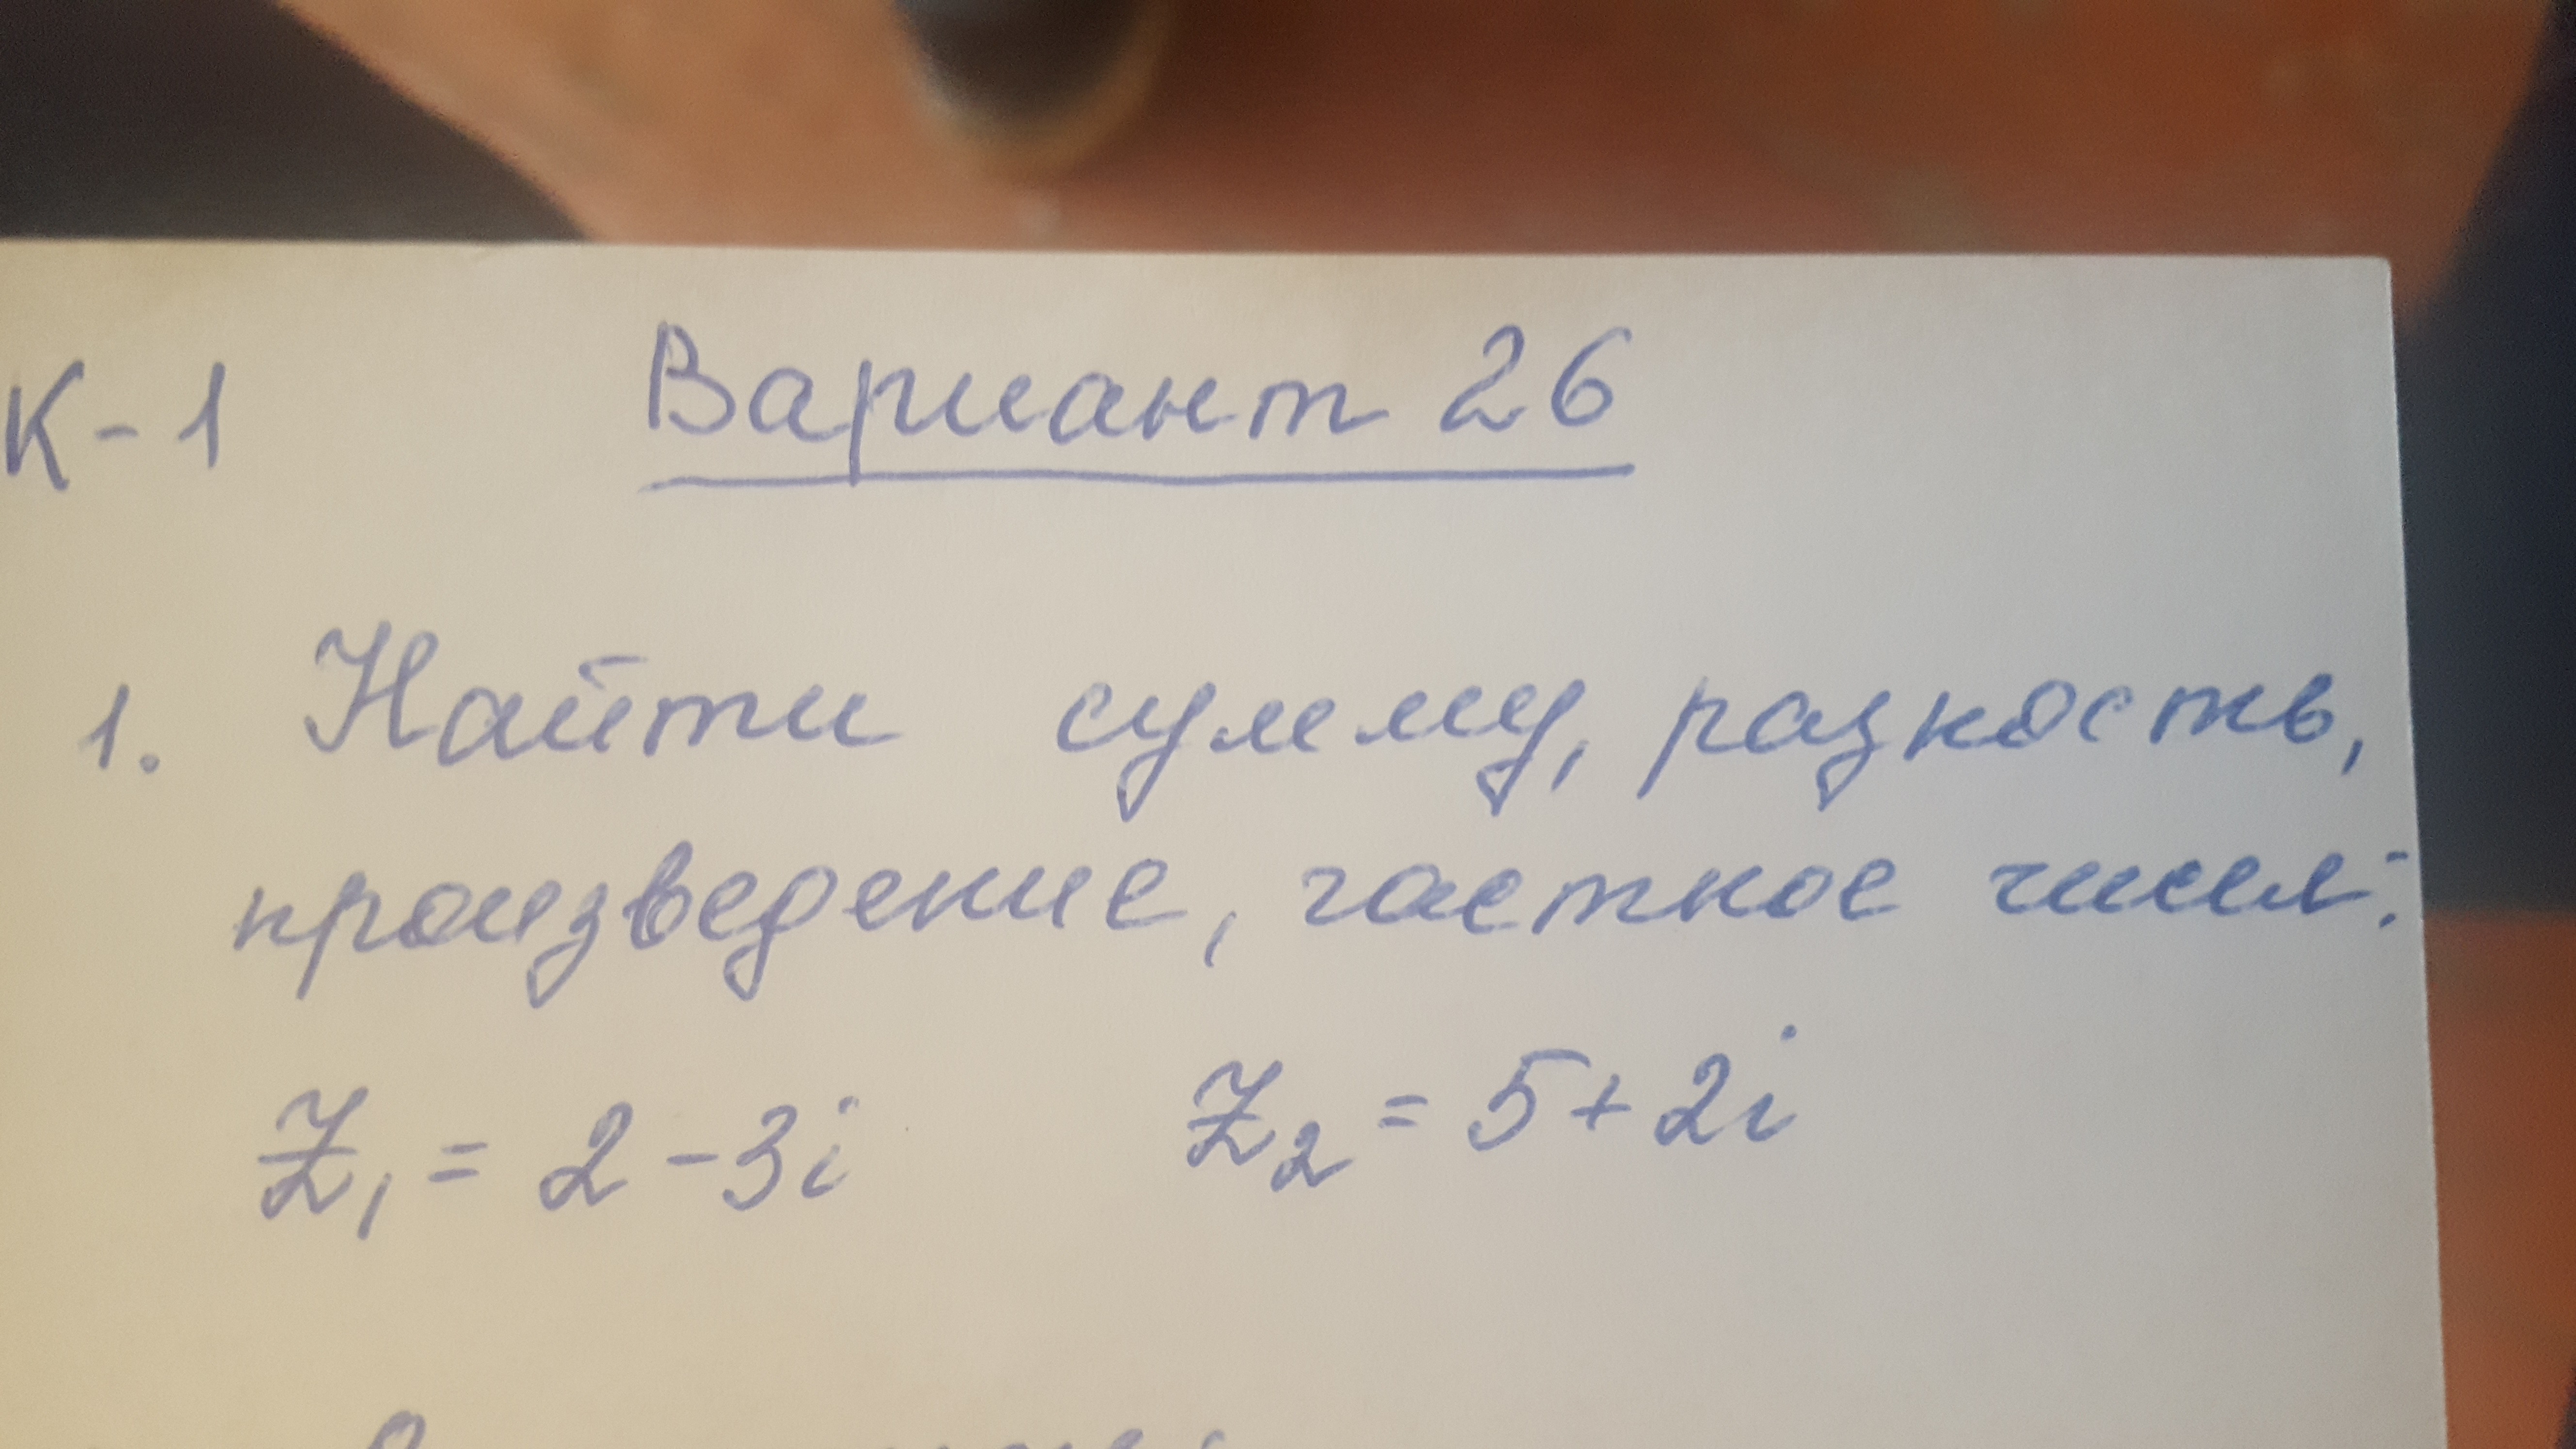 К-1 Вариант 26
1. Найти сумму, разность,
произведение, частное чисел:
Z₁ = 2 - 3i Z₂ = 5 + 2i